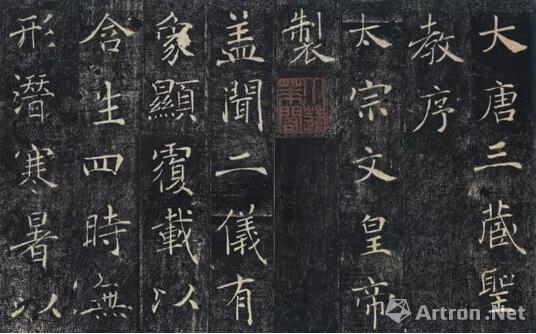 大唐三藏聖
教序
太宗文皇帝
製
盖聞二儀有
象顯覆載以
含生四時無
形潛寒暑以
Artron.Net